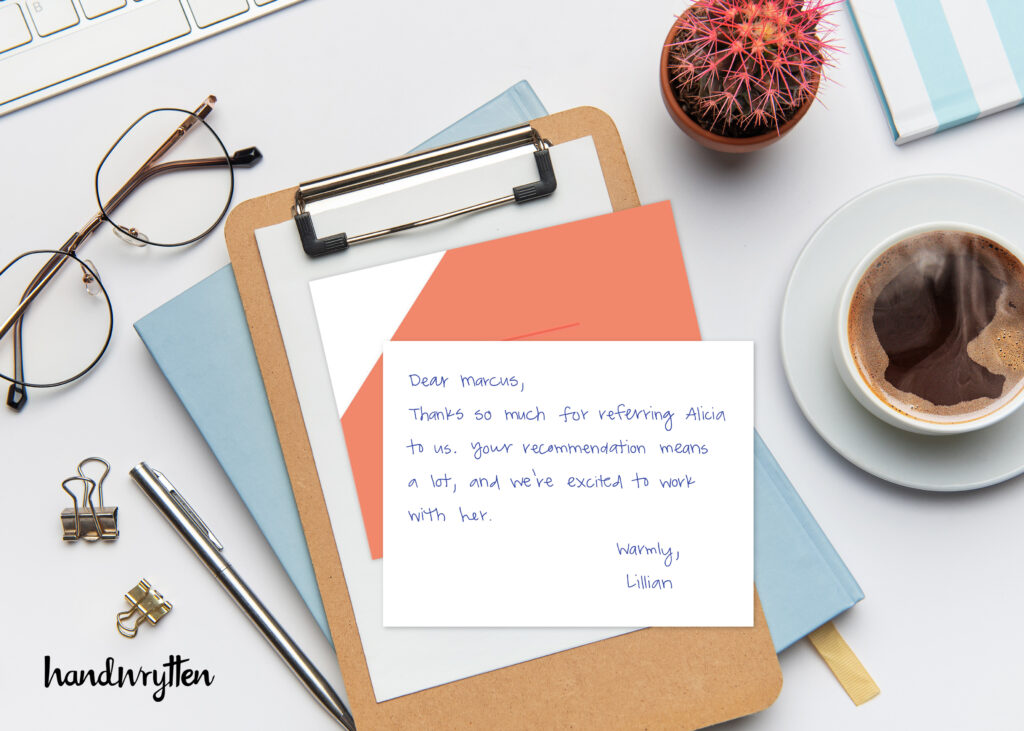 Dear Marcus,
Thanks so much for referring Alicia
to us. Your recommendation means
a lot, and we're excited to work
with her.
Warmly,
Lillian
handwrytten